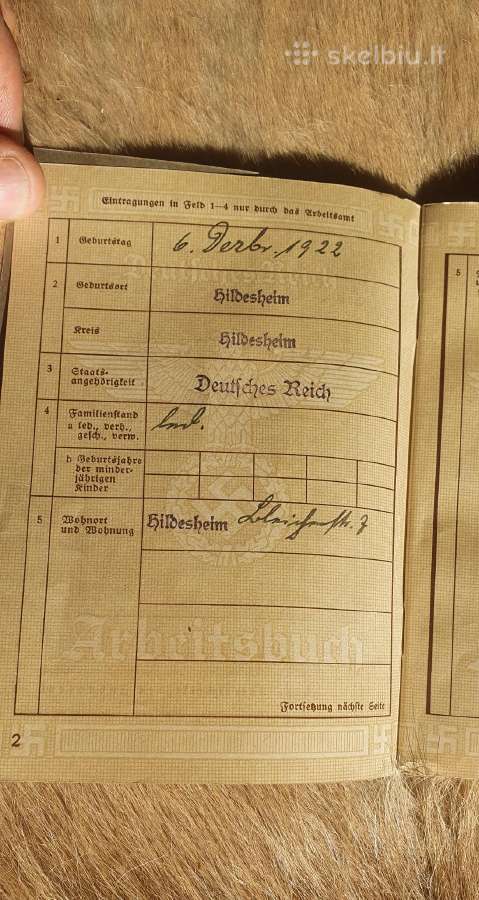 skelbiu.lt
Eintragungen in Feld 1–4 nur durch das Arbeitsamt
1 Geburtstag 6. Dezbr. 1922
2 Geburtsort Hildesheim
Kreis Hildesheim
3 Staats-
angehörigkeit Deutsches Reich
4 Familienstand led.
a led., verh.,
gesch., verw.
b Geburtsjahre
der minder-
jährigen
Kinder
5 Wohnort Hildesheim Bleichenstr. 7
und Wohnung
Arbeitsbuch
Fortsetzung nächste Seite
2
5